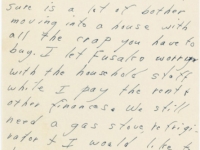 sure is a lot of bother
moving into a house with
all the crap you have to
buy. I let Fusako worry
with the household stuff
while I pay the rent &
other finances. We still
need a gas stove, refrigi-
rator & I would like t